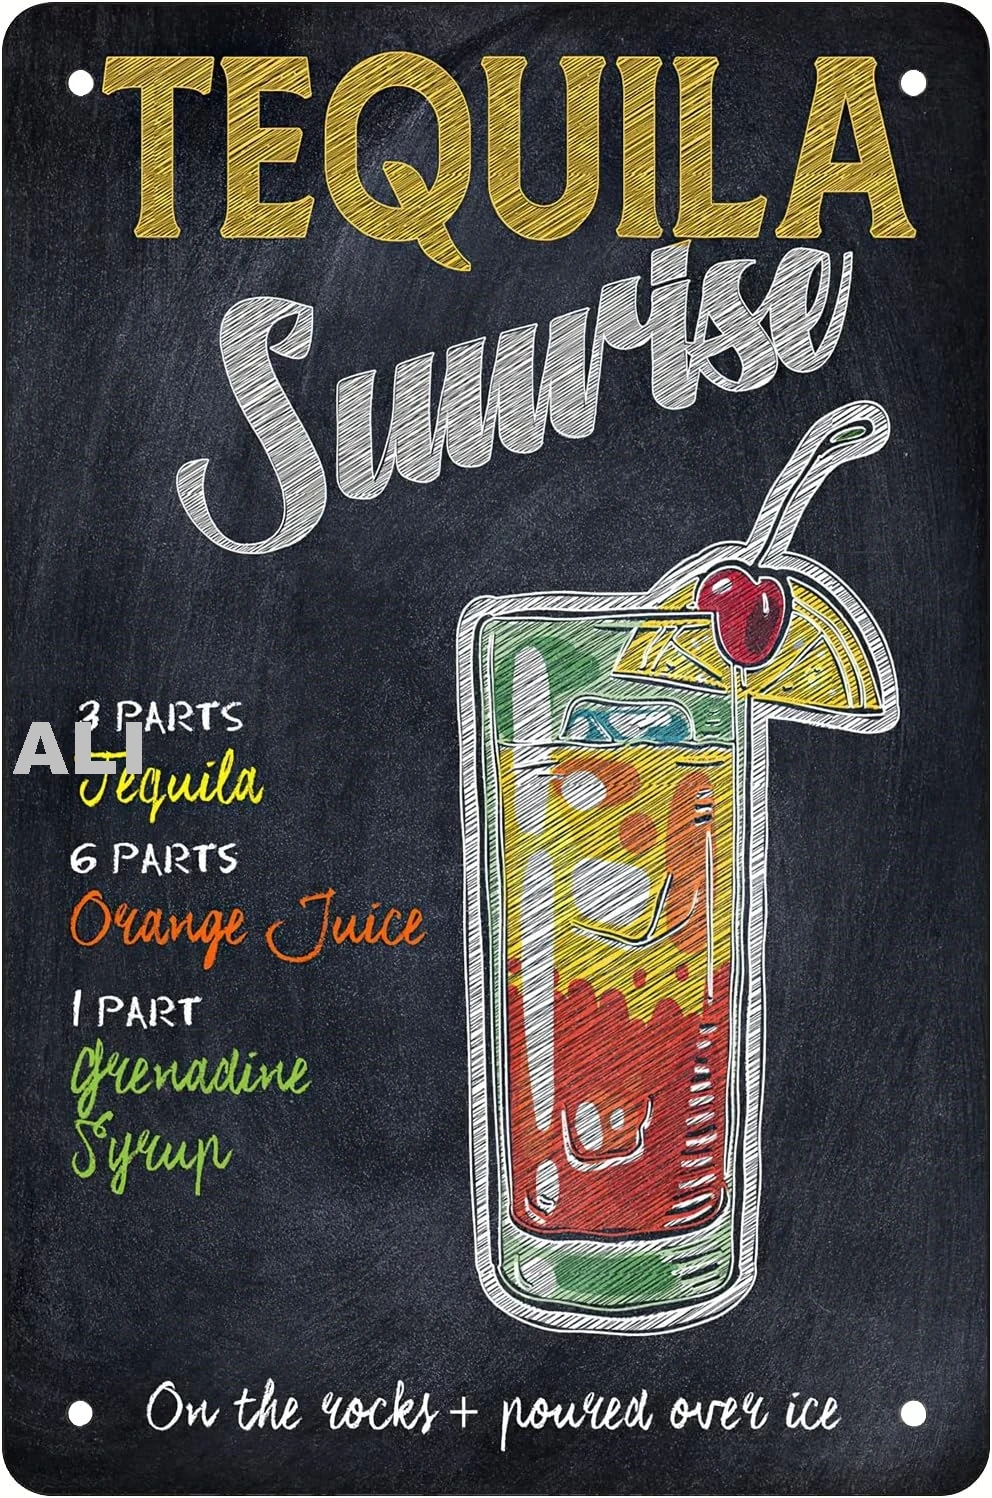 TEQUILA
Sunrise
3 PARTS
ALI
Tequila
6 PARTS
Orange Juice
1 PART
Grenadine
Syrup
On the rocks + poured over ice